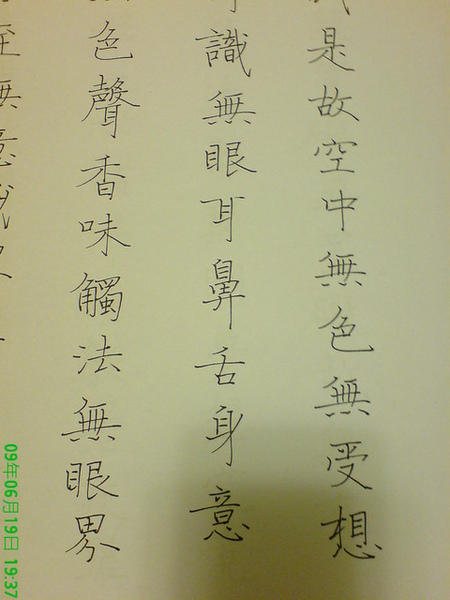 是故空中無色無受想
識無眼耳鼻舌身意
色聲香味觸法無眼界
至無意
09年06月19日 19:37